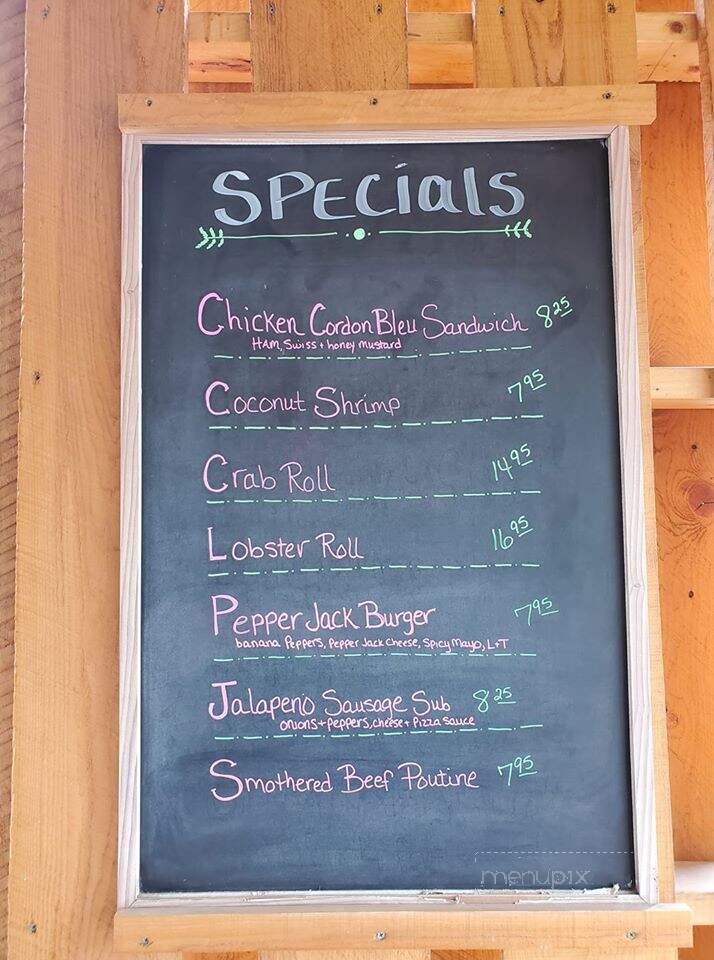 SPECiAlS
Chicken Cordon Bleu Sandwich 8 25
HAM, Swiss + honey mustard
Coconut Shrimp 7 95
Crab Roll 14 95
Lobster Roll 16 95
Pepper Jack Burger 7 95
banana Peppers, Pepper Jack Cheese, Spicy Mayo, L+T
Jalapeno Sausage Sub 8 25
onions + peppers, cheese + Pizza Sauce
Smothered Beef Poutine 7 95
menupix